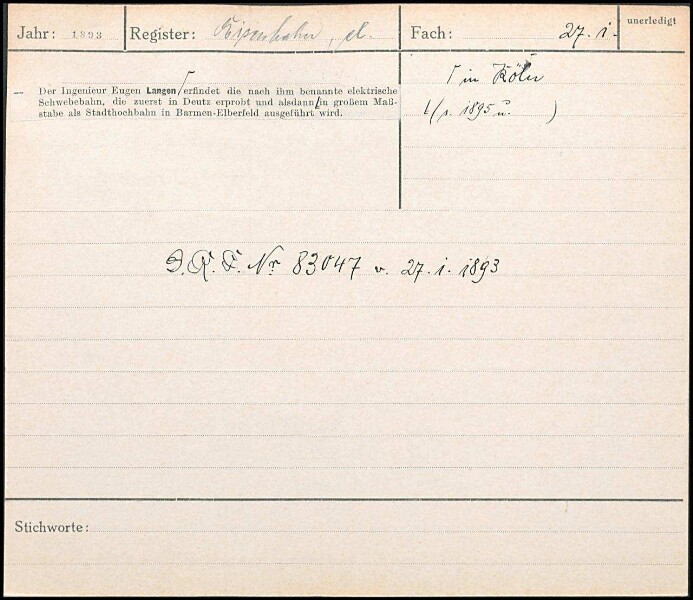 Jahr: 1893 Register: Eisenbahn, el. Fach: 27. i. unerledigt
— Der Ingenieur Eugen Langen⌈erfindet die nach ihm benannte elektrische
Schwebebahn, die zuerst in Deutz erprobt und alsdann⌊in großem Maß-
stabe als Stadthochbahn in Barmen-Elberfeld ausgeführt wird.
⌈ in Köln
⌊ (s. 1895 u. )
D.R.P. Nr 83047 v. 27. i. 1893
Stichworte: